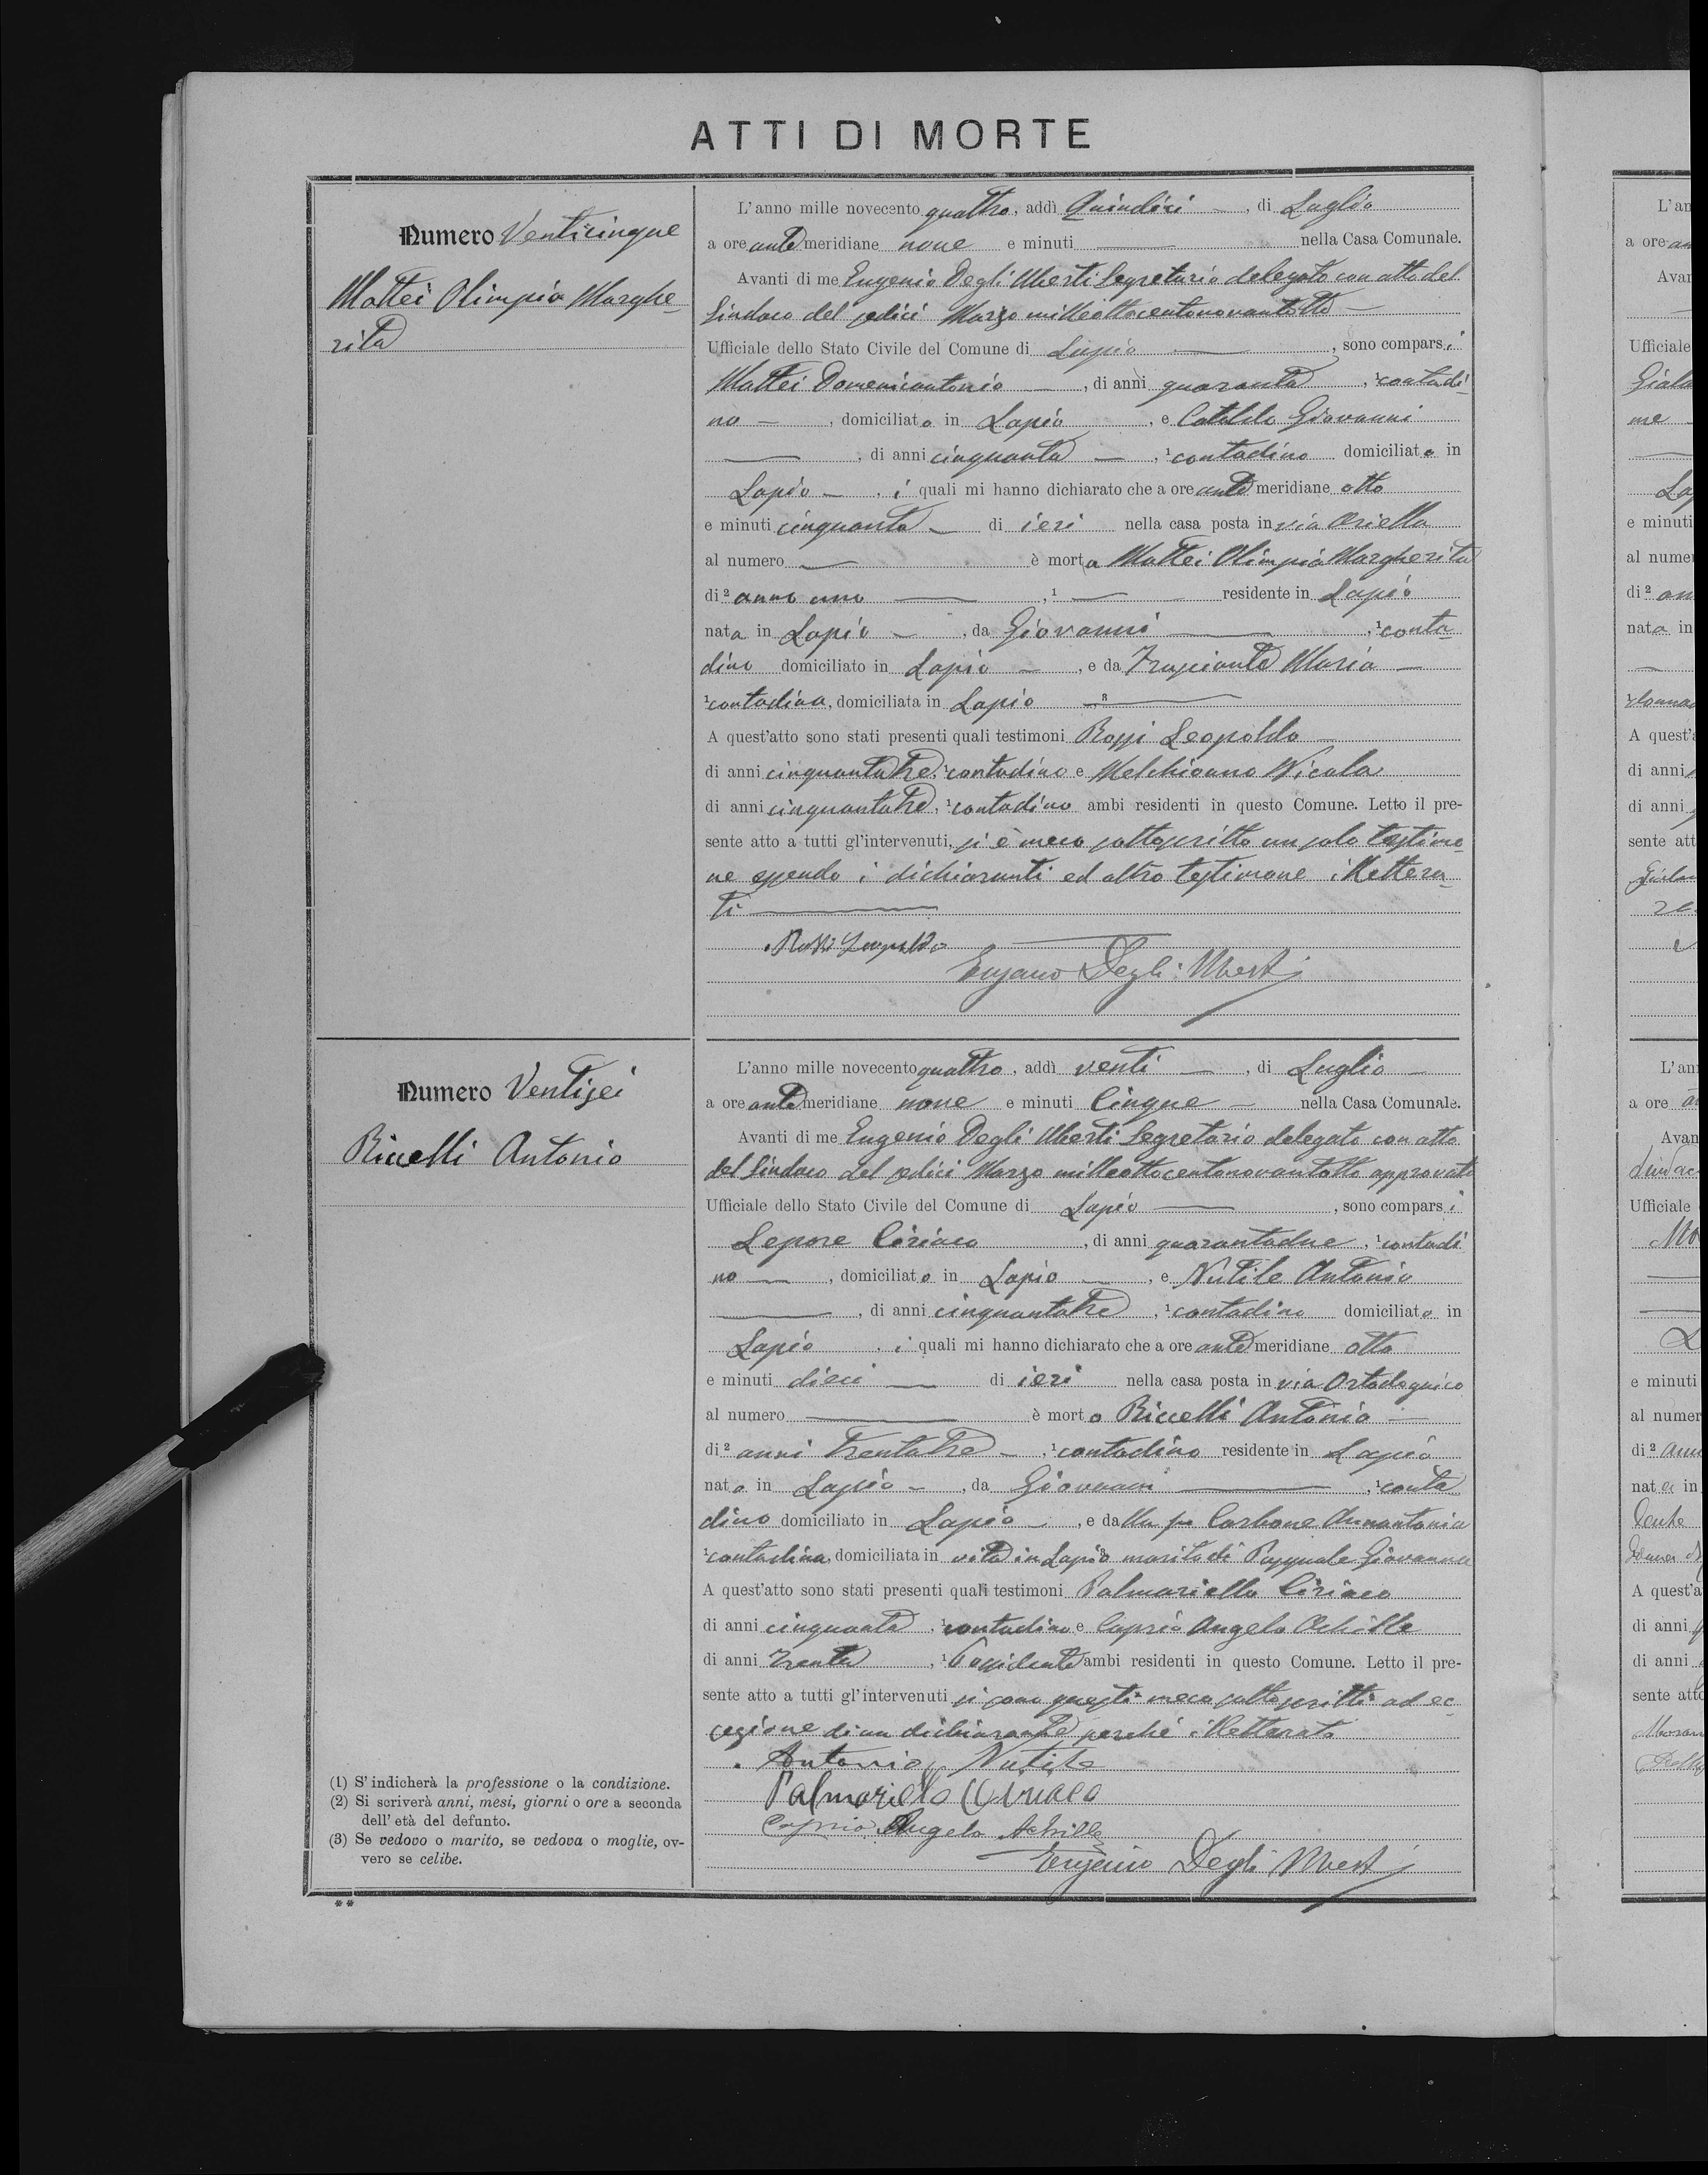 ATTI DI MORTE
Numero Venticinque
Mattei Olimpia Marghe-
rita
L'anno mille novecento quattro, addì Quindici, di Luglio
a ore antemeridiane nove e minuti — nella Casa Comunale.
Avanti di me Eugenio Degli Uberti Segretario delegato con atto del
Sindaco del sedici Marzo milleottocentonovantotto —
Ufficiale dello Stato Civile del Comune di Lapio —, sono comparsi
Mattei Domenicantonio —, di anni quaranta, ¹contadi-
no —, domiciliato in Lapio, e Cataldo Giovanni
—, di anni cinquanta —, ¹contadino domiciliato in
Lapio —, i quali mi hanno dichiarato che a ore antemeridiane otto
e minuti cinquanta — di ieri nella casa posta in via Oriella
al numero — è morta Mattei Olimpia Margherita
di² anno uno —, ¹ — residente in Lapio
nata in Lapio —, da Giovanni —, ¹conta-
dino domiciliato in Lapio —, e da Trunciante Maria —
¹contadina, domiciliata in Lapio —
A quest'atto sono stati presenti quali testimoni Rossi Leopoldo —
di anni cinquantatre, ¹contadino e Melchionno Nicola
di anni cinquantatre, ¹contadino ambi residenti in questo Comune. Letto il pre-
sente atto a tutti gl'intervenuti, si è meco sottoscritto un solo testimo-
ne essendo i dichiaranti ed altro testimone illettera-
ti —
Rossi Leopoldo
Eugenio Degli Uberti
Numero Ventisei
Riccelli Antonio
L'anno mille novecento quattro, addì venti —, di Luglio —
a ore antemeridiane nove e minuti Cinque — nella Casa Comunale.
Avanti di me Eugenio Degli Uberti Segretario delegato con atto
del Sindaco del sedici Marzo milleottocentonovantotto approvato
Ufficiale dello Stato Civile del Comune di Lapio —, sono comparsi
Lepore Ciriaco, di anni quarantadue, ¹contadi
no —, domiciliato in Lapio —, e Nutile Antonio
—, di anni cinquantatre, ¹contadino domiciliato in
Lapio, i quali mi hanno dichiarato che a ore antemeridiane otto
e minuti dieci — di ieri nella casa posta in via Ortodognico
al numero — è morto Riccelli Antonio —
di² anni trentatre —, ¹contadino residente in Lapio
nato in Lapio —, da Giovanni —, ¹conta
dino domiciliato in Lapio —, e dalla fu Carbone Annantonia
¹contadina, domiciliata in vita in Lapio marito di Pasquale Giovanna
A quest'atto sono stati presenti quali testimoni Palmariello Ciriaco
di anni cinquanta, ¹contadino e Caprio Angelo Achille
di anni Trenta, ¹Possidente ambi residenti in questo Comune. Letto il pre-
sente atto a tutti gl'intervenuti si sono questi meco sottoscritti ad ec
cezione di un dichiarante perché illetterato
Antonio Nutile
Palmariello Ciriaco
Caprio Angelo Achille
Eugenio Degli Uberti
(1) S'indicherà la professione o la condizione.
(2) Si scriverà anni, mesi, giorni o ore a seconda
dell'età del defunto.
(3) Se vedovo o marito, se vedova o moglie, ov-
vero se celibe.
**
L'an
a ore an
Avan
Ufficiale
me
La
e minuti
al numer
di² an
nata in
A quest'a
di anni
di anni
sente att
L'an
a ore a
Avan
Ufficiale
Mo
L
e minuti
al numer
di² ann
nata in
A quest'a
di anni
di anni
sente atto